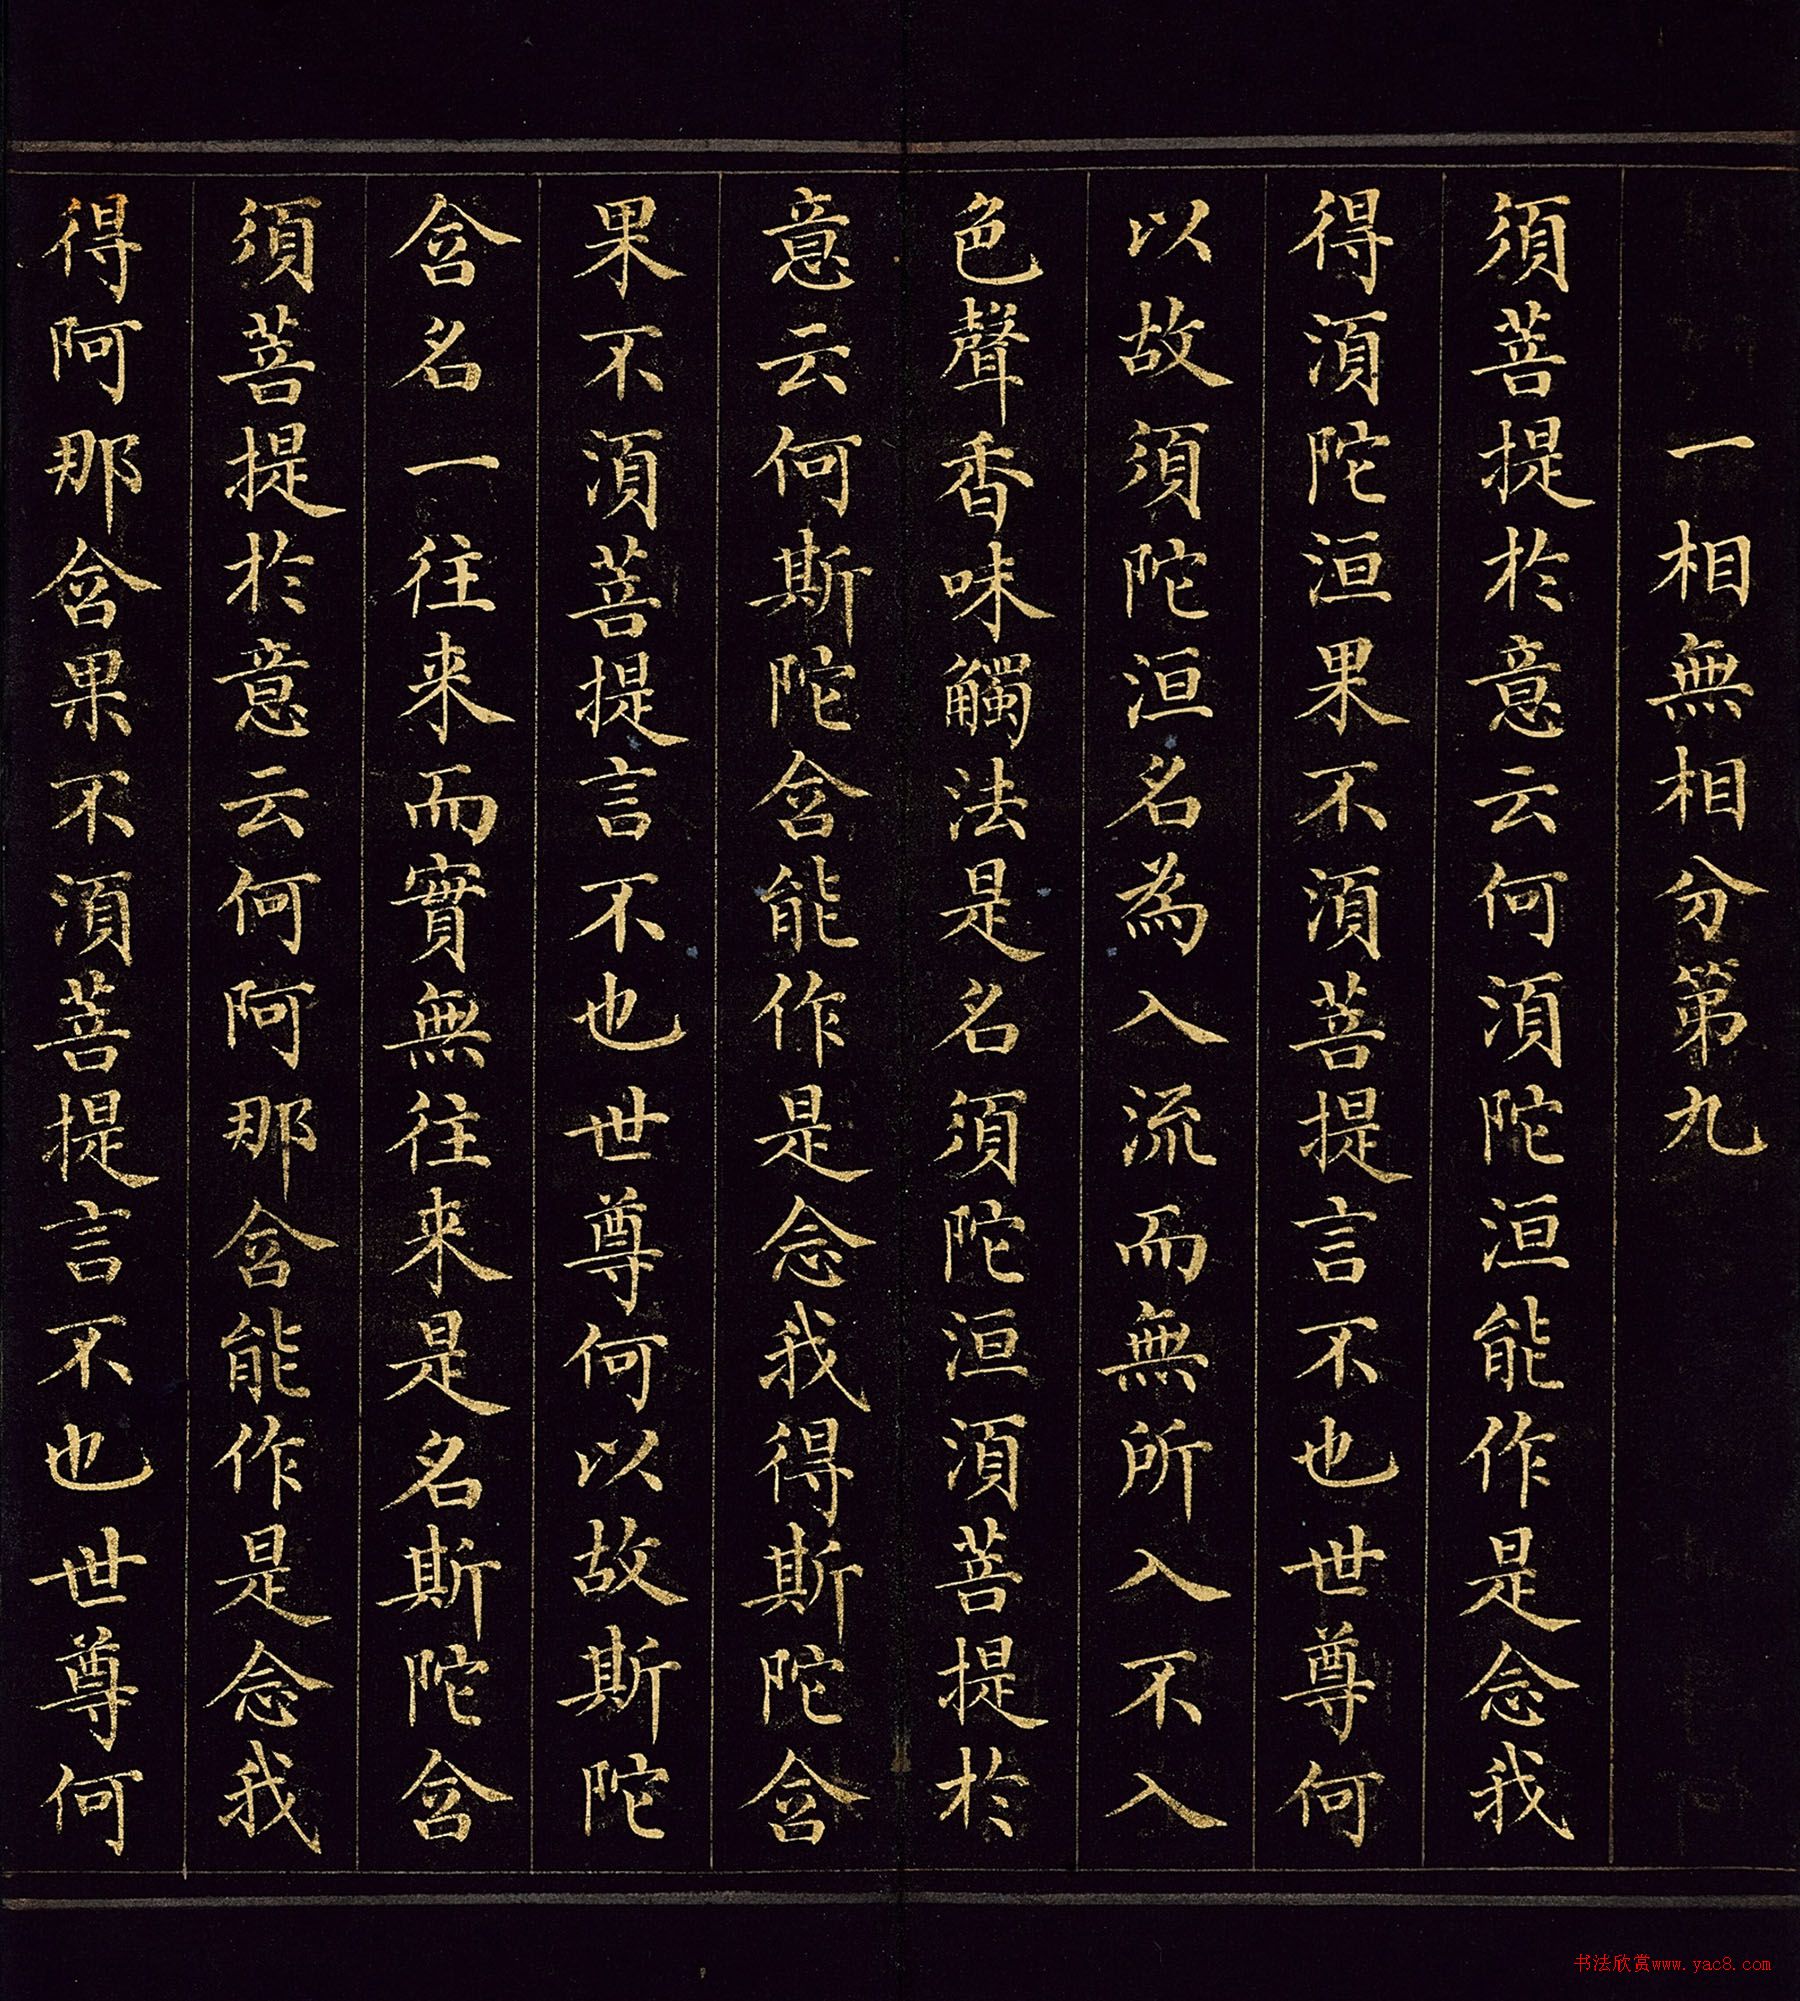 一相無相分第九
須菩提於意云何須陀洹能作是念我
得須陀洹果不須菩提言不也世尊何
以故須陀洹名為入流而無所入不入
色聲香味觸法是名須陀洹須菩提於
意云何斯陀含能作是念我得斯陀含
果不須菩提言不也世尊何以故斯陀
含名一往来而實無往来是名斯陀含
須菩提於意云何阿那含能作是念我
得阿那含果不須菩提言不也世尊何
书法欣赏www.yac8.com